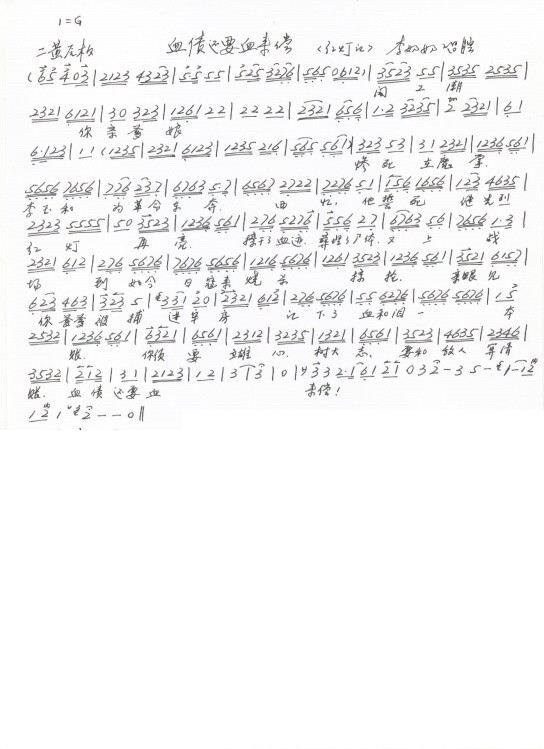 1=G
二黄原板 血债还要血来偿 《红灯记》 李奶奶唱腔
2123 4323 | 55 55 |
闹工潮
2321 6121 | 30 323 | 1261 22 | 22 22 | 2321 656 |
你亲爹娘
6·123 | 11 (1235 | 2321 6123 | 1235 216 | 565 561) | 323 53 | 31 2321 | 1236 561 |
惨死在魔掌
5656 7656 | 776 237 | 6763 57 | 6567 2722 | 7276 51 | 156 1656 | 123 4635 |
李玉和为革命东奔西忙他誓死继先烈
2323 5555 | 50 3523 | 1236 561 | 276 5276 | 556 27 | 6763 56 | 7656 1·3 |
红灯再亮擦干了血迹葬埋了尸体又上战
2321 612 | 276 5676 | 7676 5656 | 1216 5676 | 1261 3523 | 1236 561 | 3521 6157 |
场到如今日寇来烧杀掠抢亲眼见
623 463 | 323 5 | 331 20 | 2321 612 | 276 5676 | 55 6276 | 5676 5676 | 15
你爹爹被捕进牢房记下了血和泪一本
2532 | 1236 561 | 6321 | 6561 | 2312 | 3235 | 1321 | 6561 | 3523 | 4635 | 2346 |
账你须要立雄心树大志要和敌人算清
3532 | 212 | 31 | 2123 | 12 | 313 | 0 |
账血债还要血来偿!